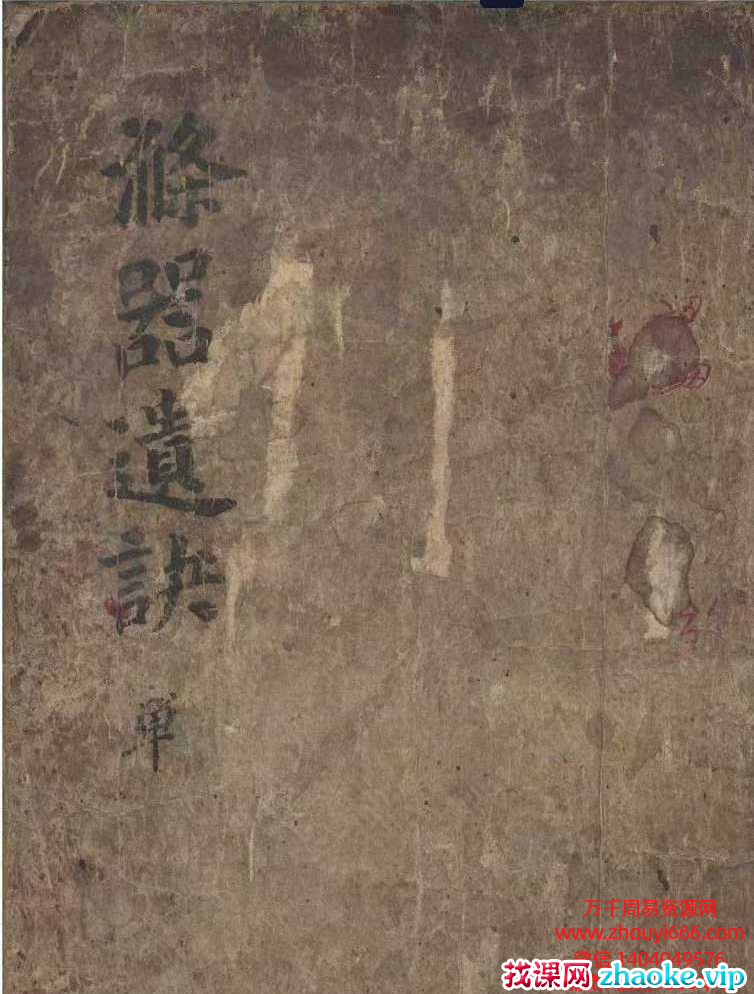 滌器遺訣
単
万千周易资源网
www.zhouyi666.com
微信 1404049576
找课网 zhaoke.vip